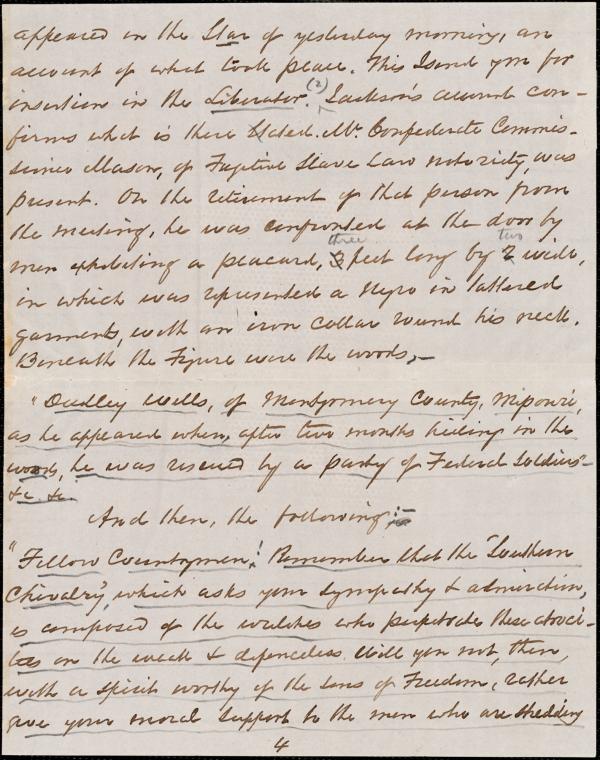 appeared in the Star of yesterday morning, an
account of what took place. This I send you for
insertion in the Liberator. (2) Jackson's account con-
firms what is there stated. Mr. Confederate Commis-
sioner Mason, of Fugitive Slave Law notoriety, was
present. On the retirement of that person from
the meeting, he was confronted at the door by
men exhibiting a placard, three feet long by two wide,
in which was represented a Negro in tattered
garments, with an iron collar round his neck.
Beneath the Figure were the words,—
"Dudley Wells, of Montgomery County, Missouri,
as he appeared when, after two months hiding in the
woods, he was rescued by a party of Federal Soldiers—
&c. &c.
And then, the following:—
"Fellow Countrymen! Remember that the "Southern
Chivalry", which asks your sympathy & admiration,
is composed of the wretches who perpetrate these atroci-
ties on the weak & defenceless. Will you not, then,
with a spirit worthy of the Sons of Freedom, rather
give your moral support to the men who are shedding
4